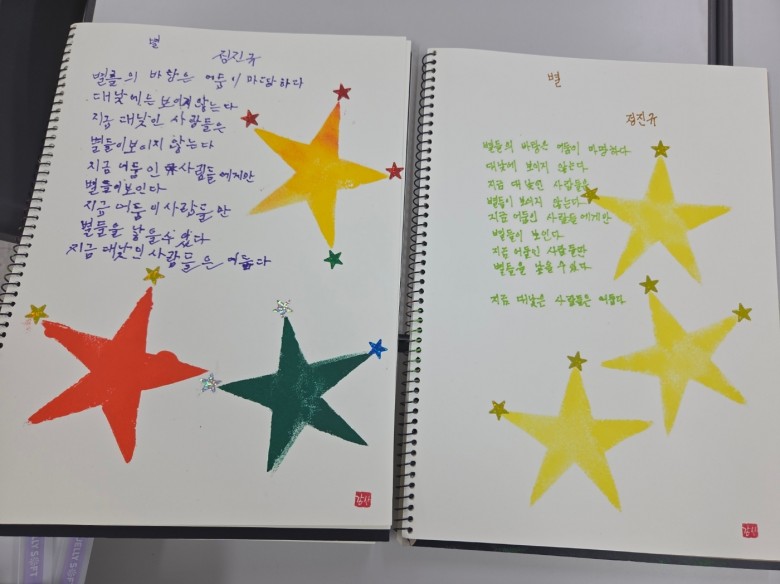 별
김진규
별들의 바탕은 어둠이 마땅하다
대낮에는 보이지 않는다
지금 대낮인 사람들은
별들이 보이지 않는다
지금 어둠인 사람들에게만
별들이 보인다
지금 어둠인 사람들만
별들을 낳을 수 있다
지금 대낮인 사람들은 어둡다
감사
별
김진규
별들의 바탕은 어둠이 마땅하다
대낮에 보이지 않는다
지금 대낮인 사람들은
별들이 보이지 않는다
지금 어둠인 사람들에게만
별들이 보인다
지금 어둠인 사람들만
별들을 낳을 수 있다
지금 대낮은 사람들은 어둡다
감사